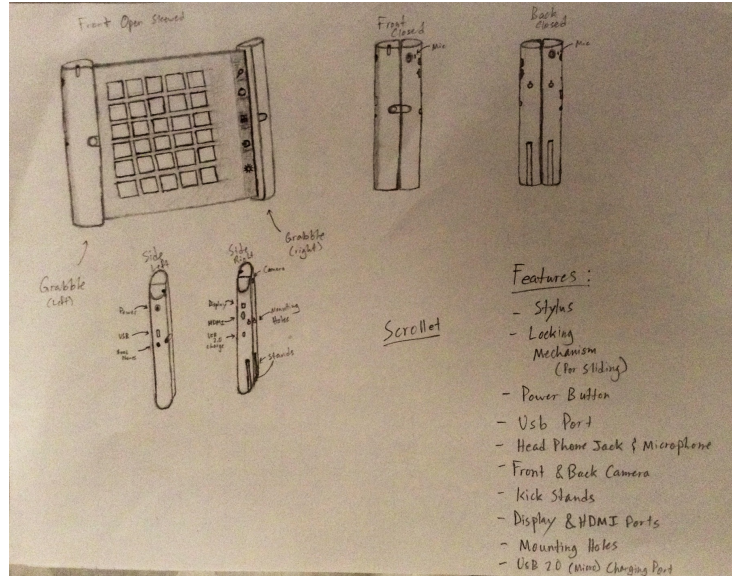 Front Open Slewed
Front
Closed
Mic
Back
Closed
Mic
Grabble
(Left)
Grabble
(right)
Side
Left
Power
USB
Side
Right
Camera
Display
HDMI
USB
2.0
charge
Mounting
Holes
Stands
Scrollet
Features :
- Stylus
- Locking
Mechanism
(For Sliding)
- Power Button
- Usb Port
- Head Phone Jack & Microphone
- Front & Back Camera
- Kick Stands
- Display & HDMI Ports
- Mounting Holes
- UsB 2.0 (Micro) Charging Port